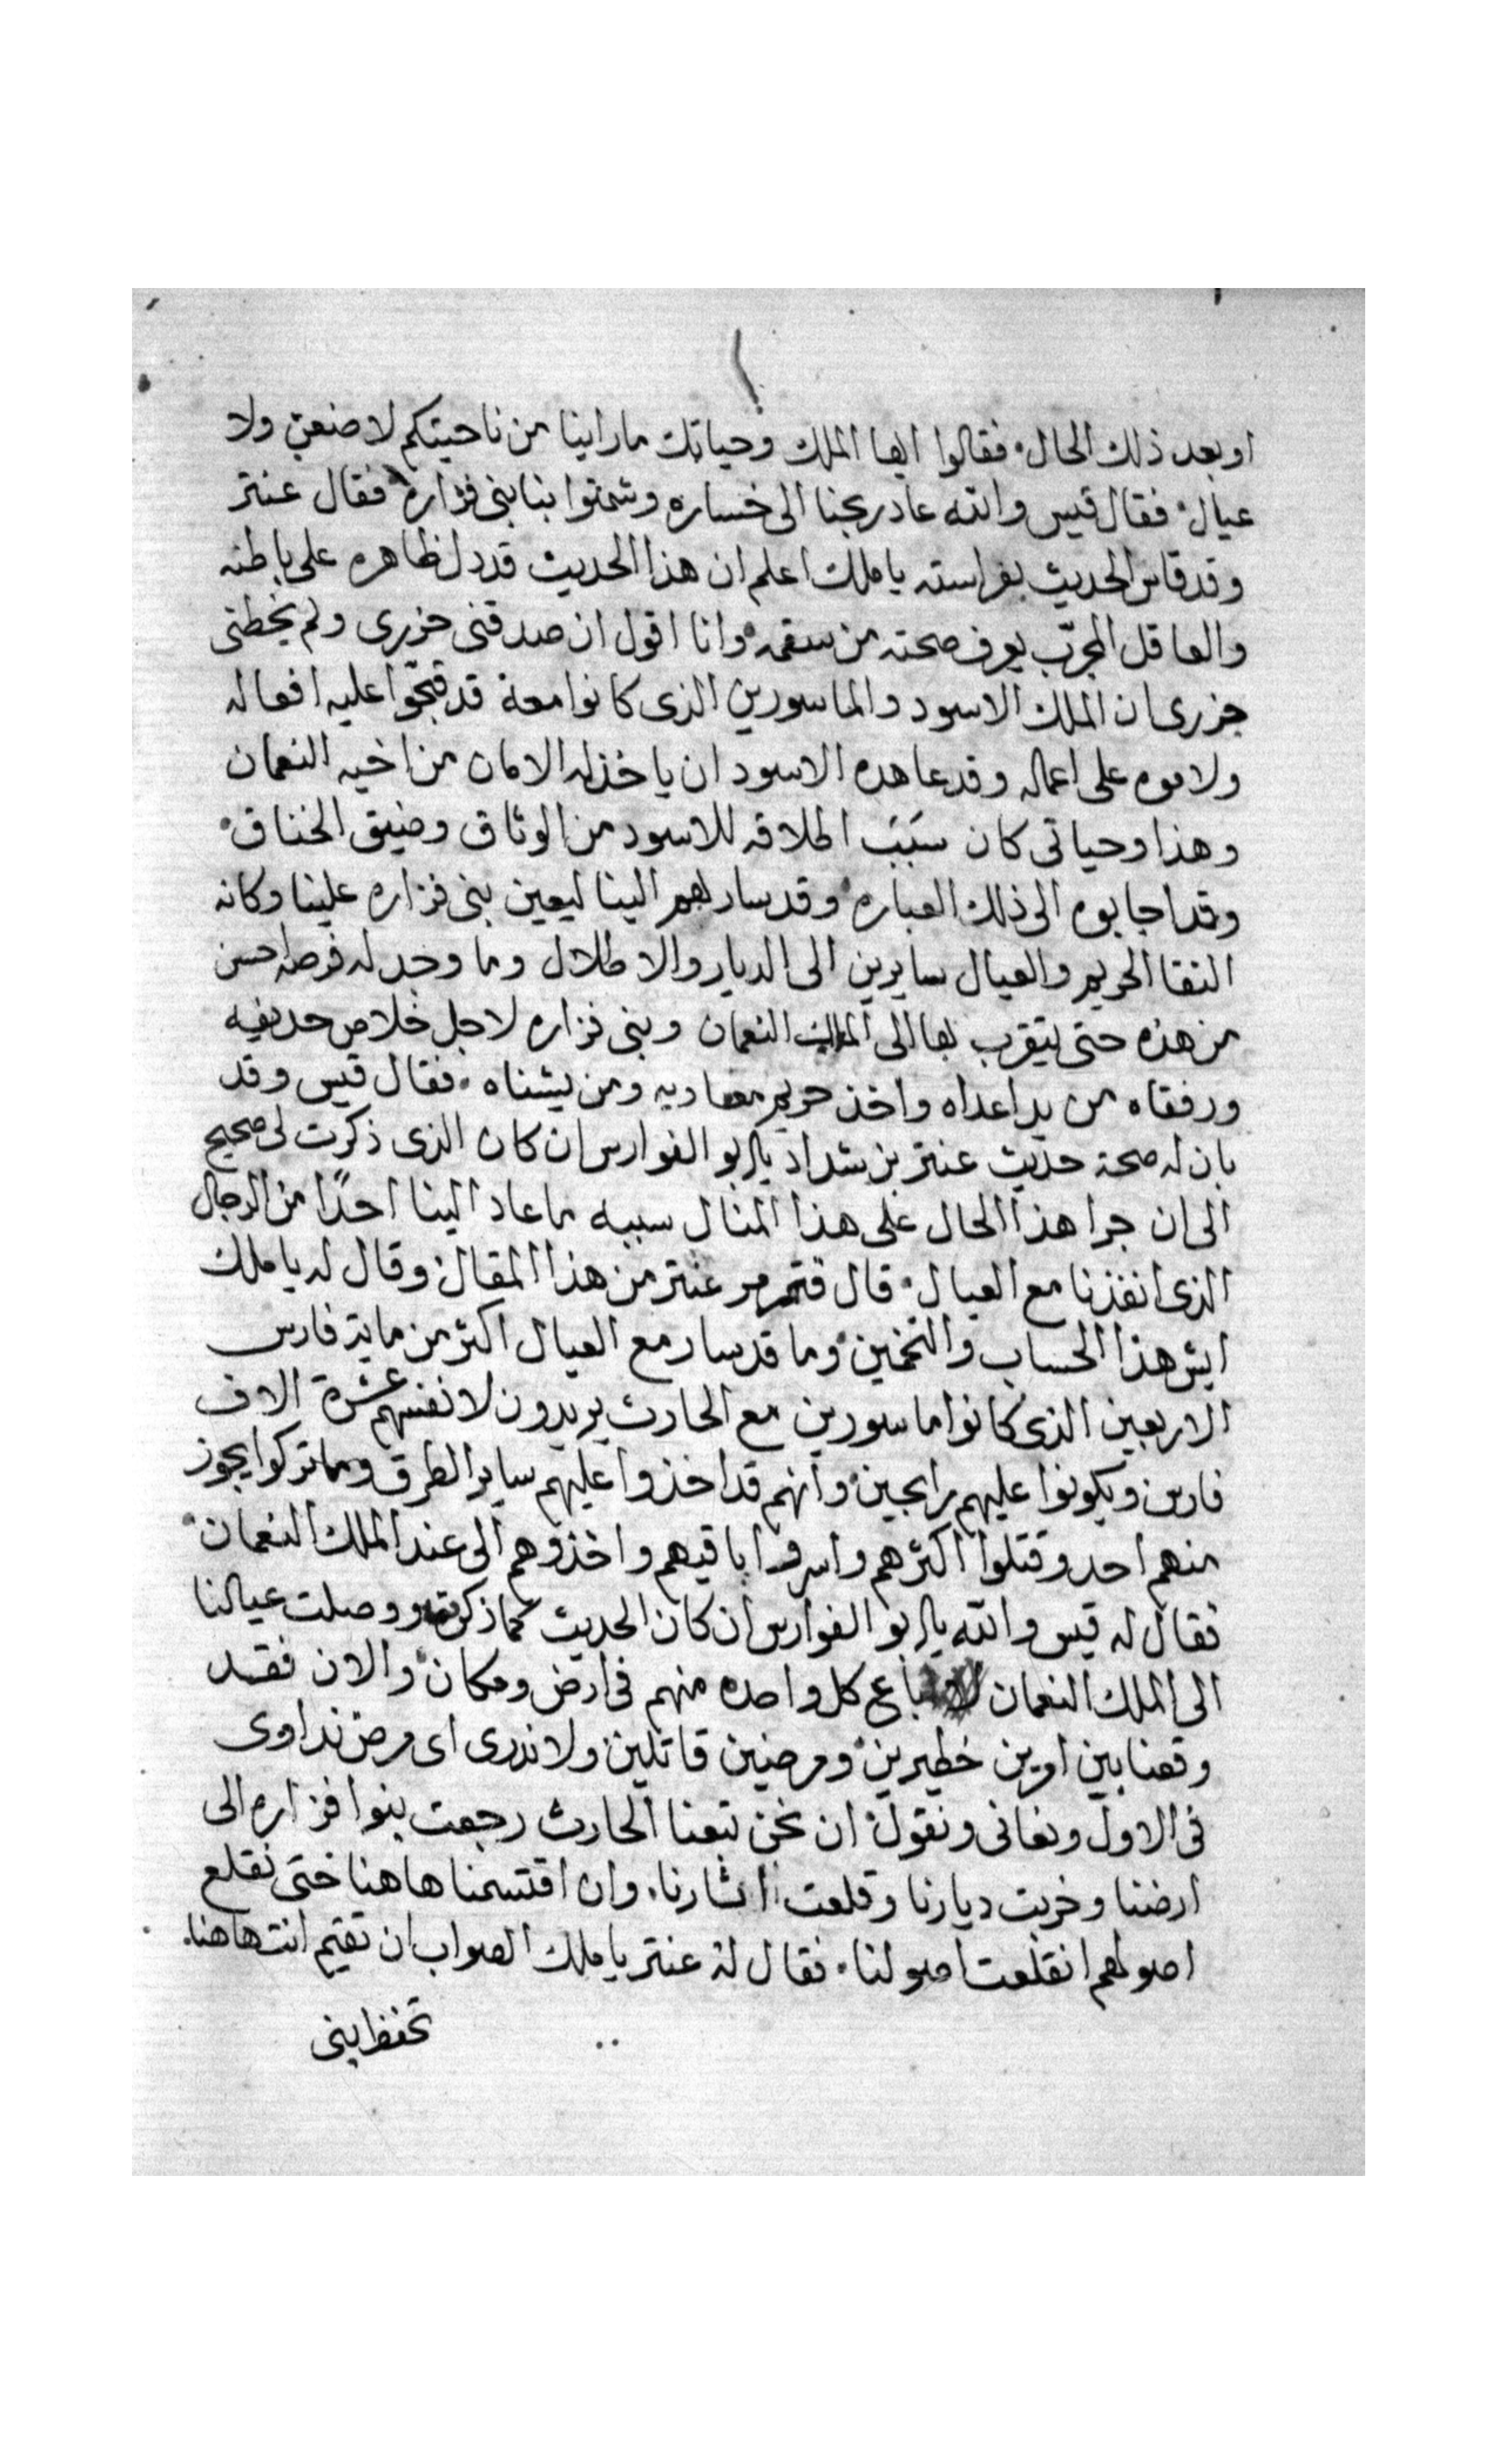 او بعد ذلك الحال. فقالوا ايها الملك وحياتك ما راينا من ناحيتكم لا ضعن ولا
عيال. فقال قيس والله عاد ربحنا الى خساره وشمتوا بنا بنى فزاره فقال عنتر
وقد قاس الحديث بفراسته يا ملك اعلم ان هذا الحديث قد دل ظاهره على باطنه
والعاقل المجرّب يعرف صحته من سقمه وانا اقول ان صدقنى حزرى ولم يخطنى
حزرى ان الملك الاسود والماسورين الذى كانوا معة قد قبّحوا عليه افعاله
ولاموه على اعماله وقد عاهده الاسود ان ياخذ له الامان من اخيه النعمان
وهذا وحياتى كان سَبَبَ اطلاقه للاسود من الوثاق وضيق الخناق.
وقد اجابوه الى ذلك العباره وقد سار لهم الينا ليعين بنى فزاره علينا وكانه
التقا الحريم والعيال سايرين الى الديار والاطلال وما وجد له فرصه احسن
من هذه حتى يتقرب بها الى الملك النعمان وبنى فزاره لاجل خلاص حديفه
ورفقاه من يد اعداه واخذ حريم معاديه ومن يشناه. فقال قيس وقد
بان له صحة حديث عنتر بن شداد يابو الفوارس ان كان الذى ذكرت لى صحيح
الى ان جرا هذا الحال على هذا المثال سببه ما عاد الينا احدًا من الرجال
الذى انفذنا مع العيال. قال فتمرمر عنتر من هذا المقال وقال له يا ملك
ايش هذا الحساب والتخمين وما قد سار مع العيال اكثر من ماية فارس
الاربعين الذى كانوا ماسورين مع الحارث يريدون لانفسهم عشرة الاف
فارس ويكونوا عليهم رابحين وانهم قد اخذوا عليهم ساير الطرق وما تركوا يجوز
منهم احد وقتلوا اكثرهم واسروا باقيهم واخذوهم الى عند الملك النعمان.
فقال له قيس والله يابو الفوارس ان كان الحديث كما ذكرته ووصلت عيالنا
الى الملك النعمان لا باع كل واحده منهم فى ارض ومكان والان فقد
وقعنا بين امرين خطيرين ومرضين قاتلين ولا ندرى اى مرض نداوى
فى الاول ونعانى ونقول ان نحن تبعنا الحارث رجعت بنوا فزاره الى
ارضنا وخربت ديارنا وقلعت اثارنا. وان اقتسمنا هاهنا حتى نقلع
اصولهم انقلعت اصولنا. فقال له عنتر يا ملك الصواب ان تقيم انت هاهنا.
تحفظ بنى